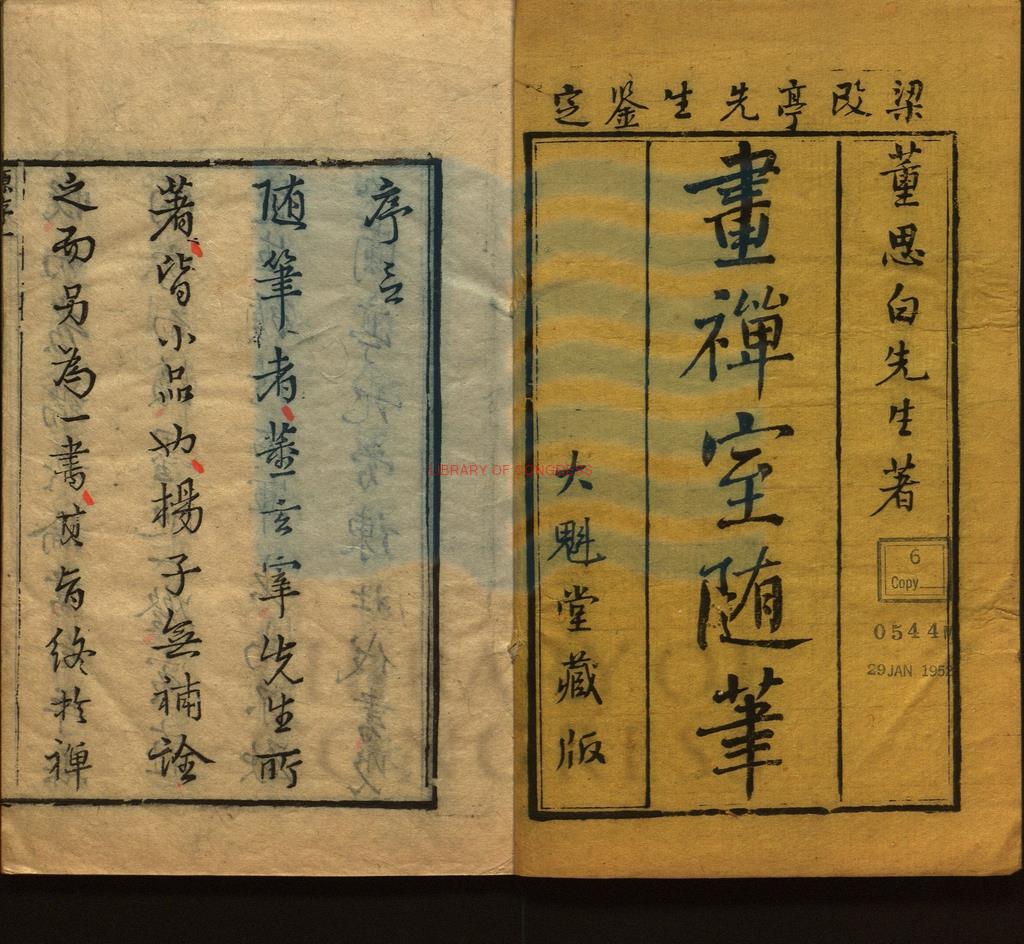 梁改亭先生鉴定
董思白先生著
畫禪室随筆
大魁堂藏版
6
Copy
0544
29 JAN 1952
序言
随筆者董玄宰先生所
著皆小品也楊子無補詮
之而另為一書其旨終於禅
LIBRARY OF CONGRESS